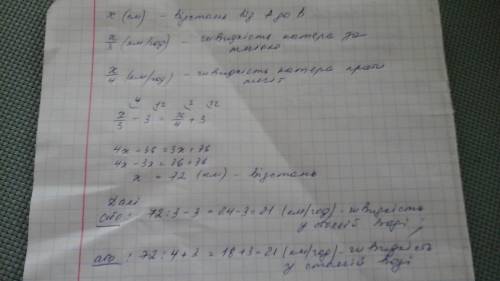 x (км) - відстань від А до В
x/3 (км/год) - швидкість катера за
течією
x/4 (км/год) - швидкість катера проти
течії
4 12 3 12
x/3 - 3 = x/4 + 3
4x - 36 = 3x + 36
4x - 3x = 36 + 36
x = 72 (км) - відстань
Далі
або: 72 : 3 - 3 = 24 - 3 = 21 (км/год) - швидкість
у стоячій воді;
або: 72 : 4 + 3 = 18 + 3 = 21 (км/год) - швидкість
у стоячій воді